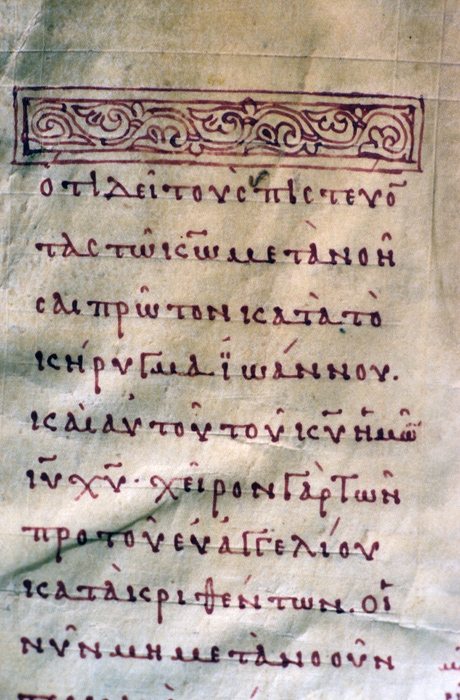 ὁτι δεῖ τοὺς πιστευό
τας τῶ κω̅ μετανοῆ
σαι πρῶτον κατὰ τὸ
κήρυγμα ϊωάννου.
καὶ αὐτοῦ τοῦ κυ̅ ἡμῶ
ιυ̅ χυ̅· χεῖρον γὰρ τῶν
πρὸ τοῦ εὐαγγελίου
κατακριθέντων. οἱ
νῦν μὴ μετανοοῦν